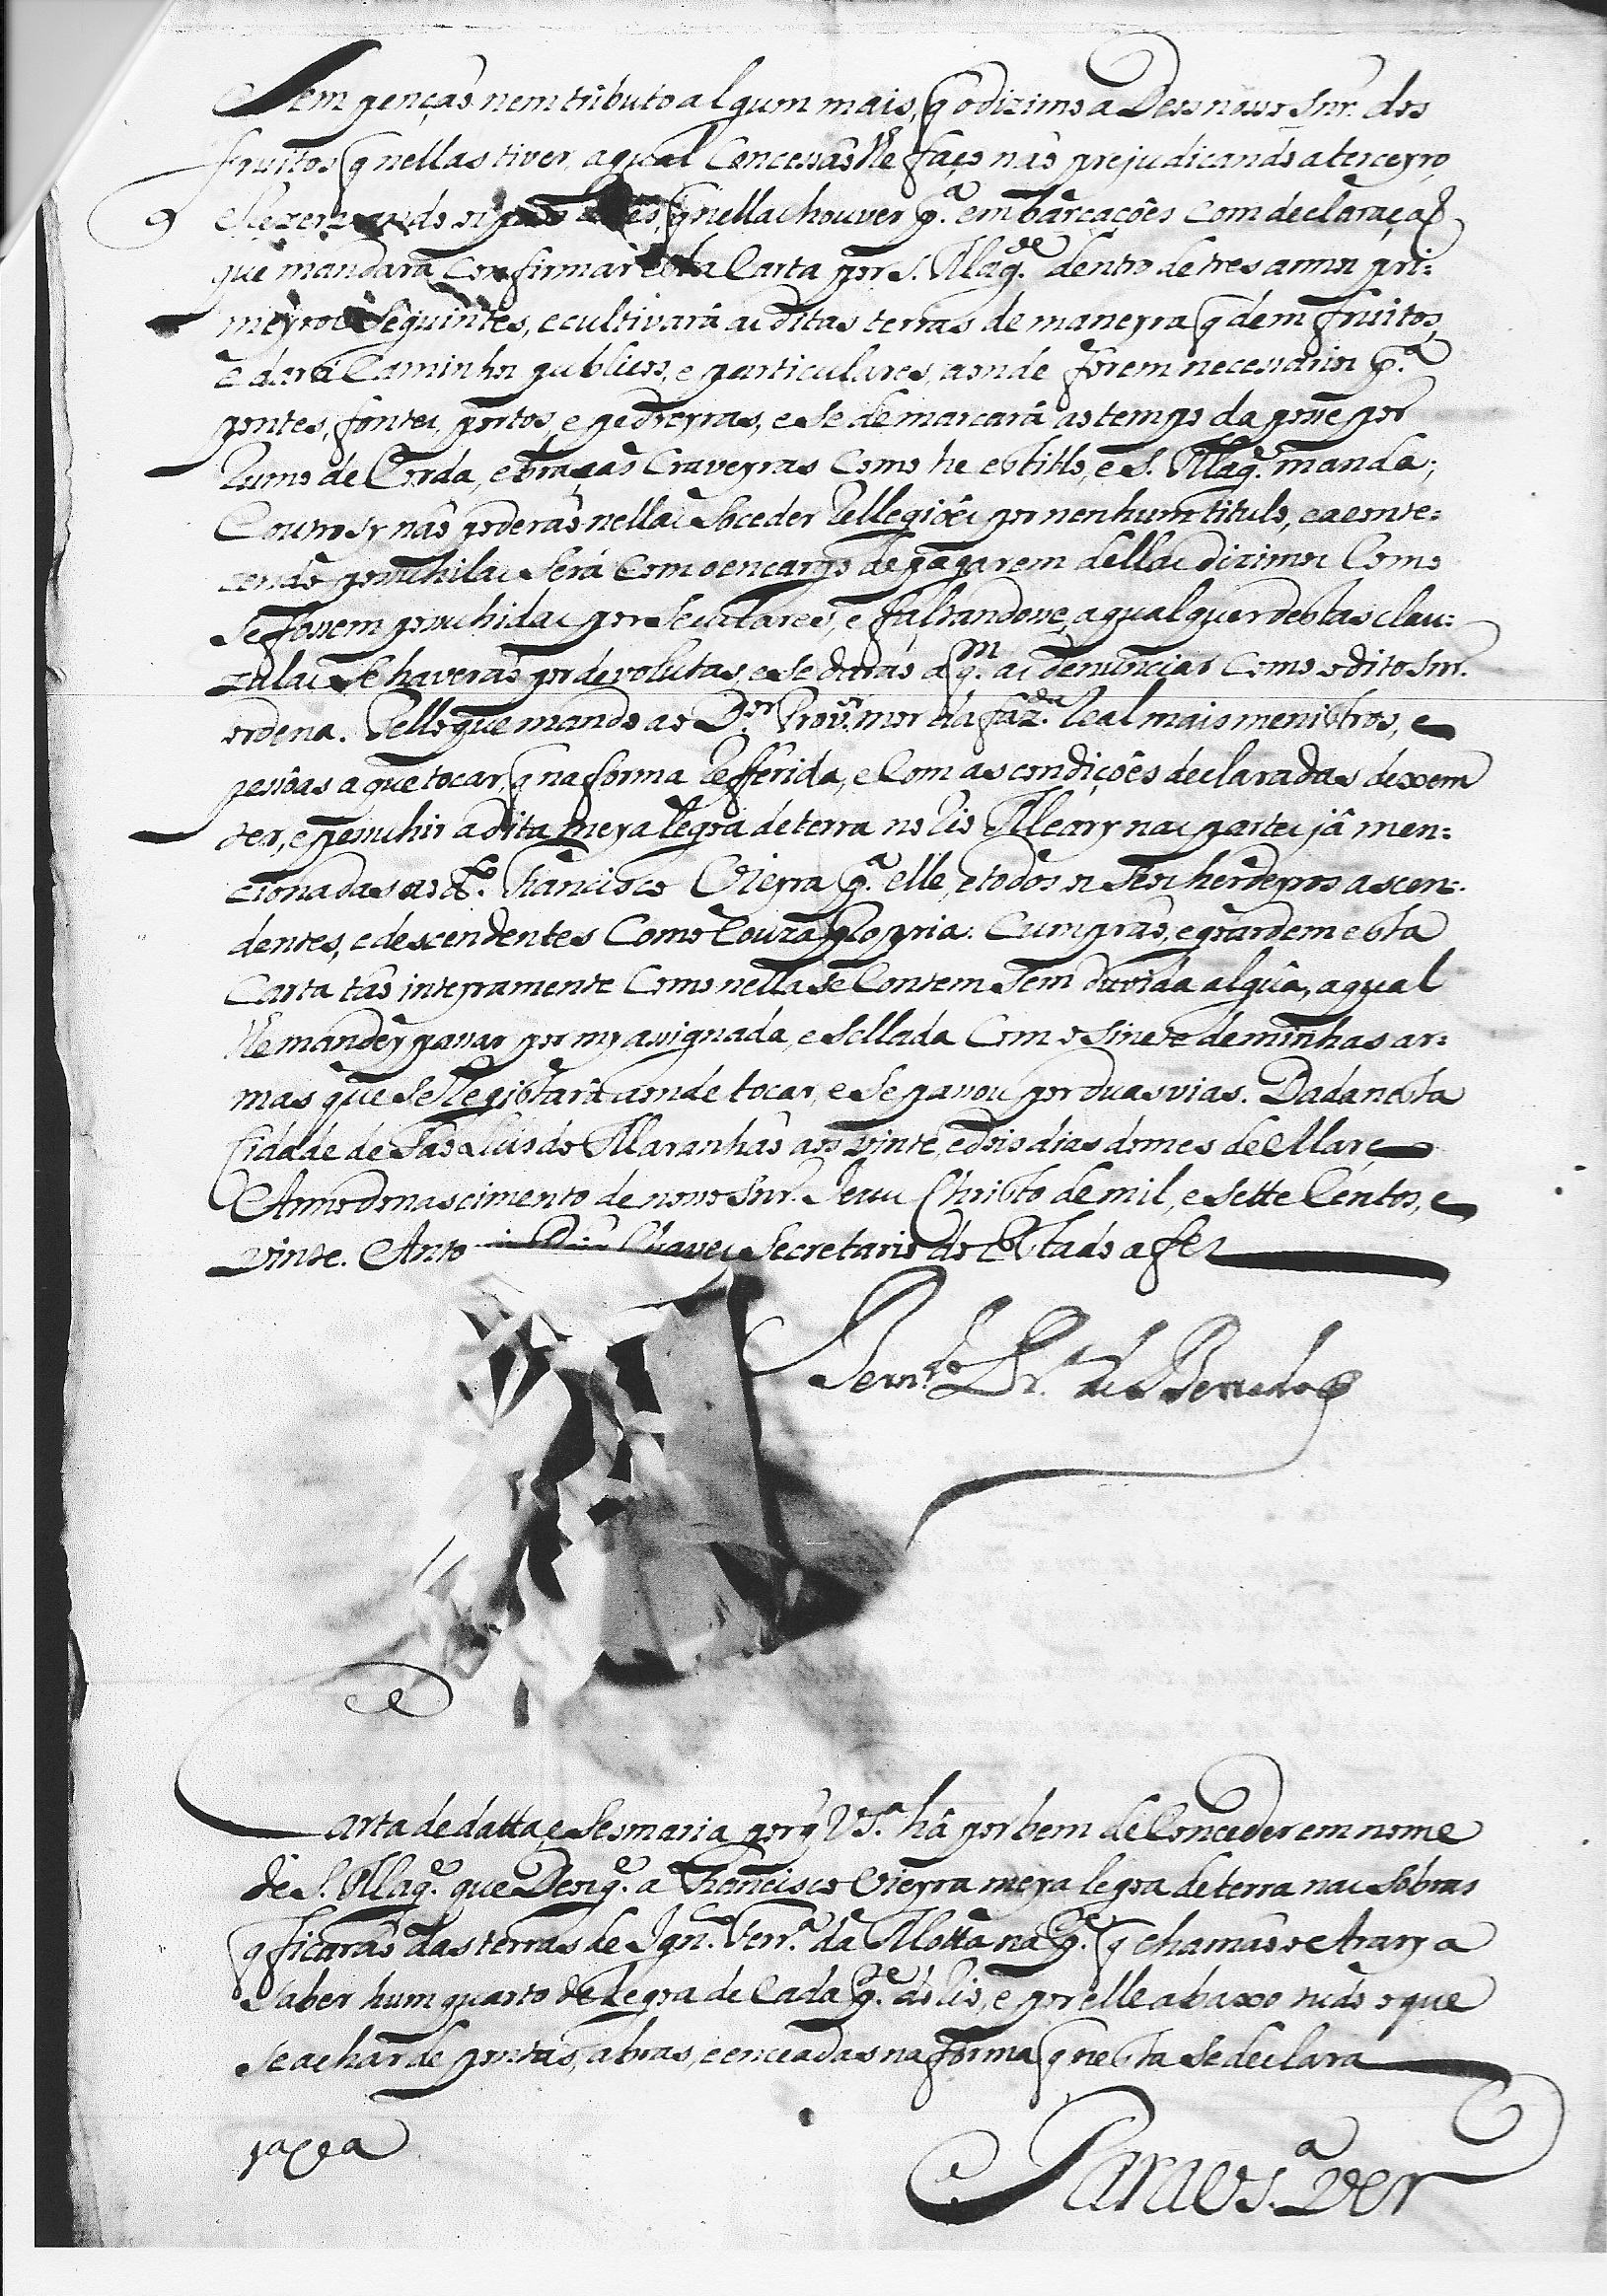 Sem penção nem tributo algum mais, q̃ o dizimo a Deos nosso Snr. dos
fruitos q̃ nellas tiver, a qual Concessão lhe faço não prejudicando a terceyro,
e rezervando q̃ nellas houver p.ª embarcações com declaração
que mandarâ Confirmar esta Carta por S. Mag.de dentro de tres annos pri=
meyros Seguintes, e cultivarâ as ditas terras de maneyra q̃ dem fruitos,
e darâ Caminhos publicos, e particulares, aonde forem necessarios p.ª
pontes, fontes, portos, e pedreyras, e Se demarcarâ ao tempo da posse por
Rumo de Corda, e braças Craveyras Como he estillo, e S. Mag.e manda;
E outro sy não poderão nellas Soceder Rellegiões por nenhum titulo, e aconte=
cendo possuhilas Será Com o encargo de pagarem dellas dizimos Como
Se fossem possuhidas por Seculares, e faltandosse a qualquer destas clau=
zulas Se haverão por devolutas, e Se darão a q.m as denunciar Como o dito Snr.
ordena. Pello que mando ao D.or Prov.or mor da faz.da Real mais menistros, e
pessôas a que tocar, q̃ na forma Refferida, e Com as condições declaradas dexem
ter, e possuhir a dita meya legoa de terra no Rio Meary nas partes jâ men=
cionadas ao d.o Francisco Vieyra p.ª elle, e todos os Seos herdeyros ascen=
dentes, e descendentes Como Couza Propria. Cumprão, e guardem esta
Carta tão inteyramente Como nella Se Contem Sem duvida algûa, a qual
lhe mandey passar por my assignada, e Sellada Com o Sinete de minhas ar=
mas que Se Registarâ aonde tocar, e Se passou por duas vias. Dada nesta
Cidade de São Luis do Maranhão aos vinte, e dois dias do mes de Março
Anno do nascimento de nosso Snr. Jesu Christo de mil, e Sette Centos, e
vinte. Anto Chaves Secretario do Estado a fez
Bern.do Pr.ª de Berredo
Carta de datta e Sesmaria por q̃ V S.ª hâ por bem de Conceder em nome
de S. Mag.e que Deos g.e a Francisco Vieyra meya legoa de terra nas Sobras
q̃ ficarão das terras de Ign.o Ferr.ª da Motta na p.te q̃ chamão o Arary a
Saber hum quarto de Legoa de Cada p.te do Rio, e por elle abaxo tudo o que
Se achar de pontas, abras, e enceadas na forma q̃ nesta Se declara
Para V S.ª Ver